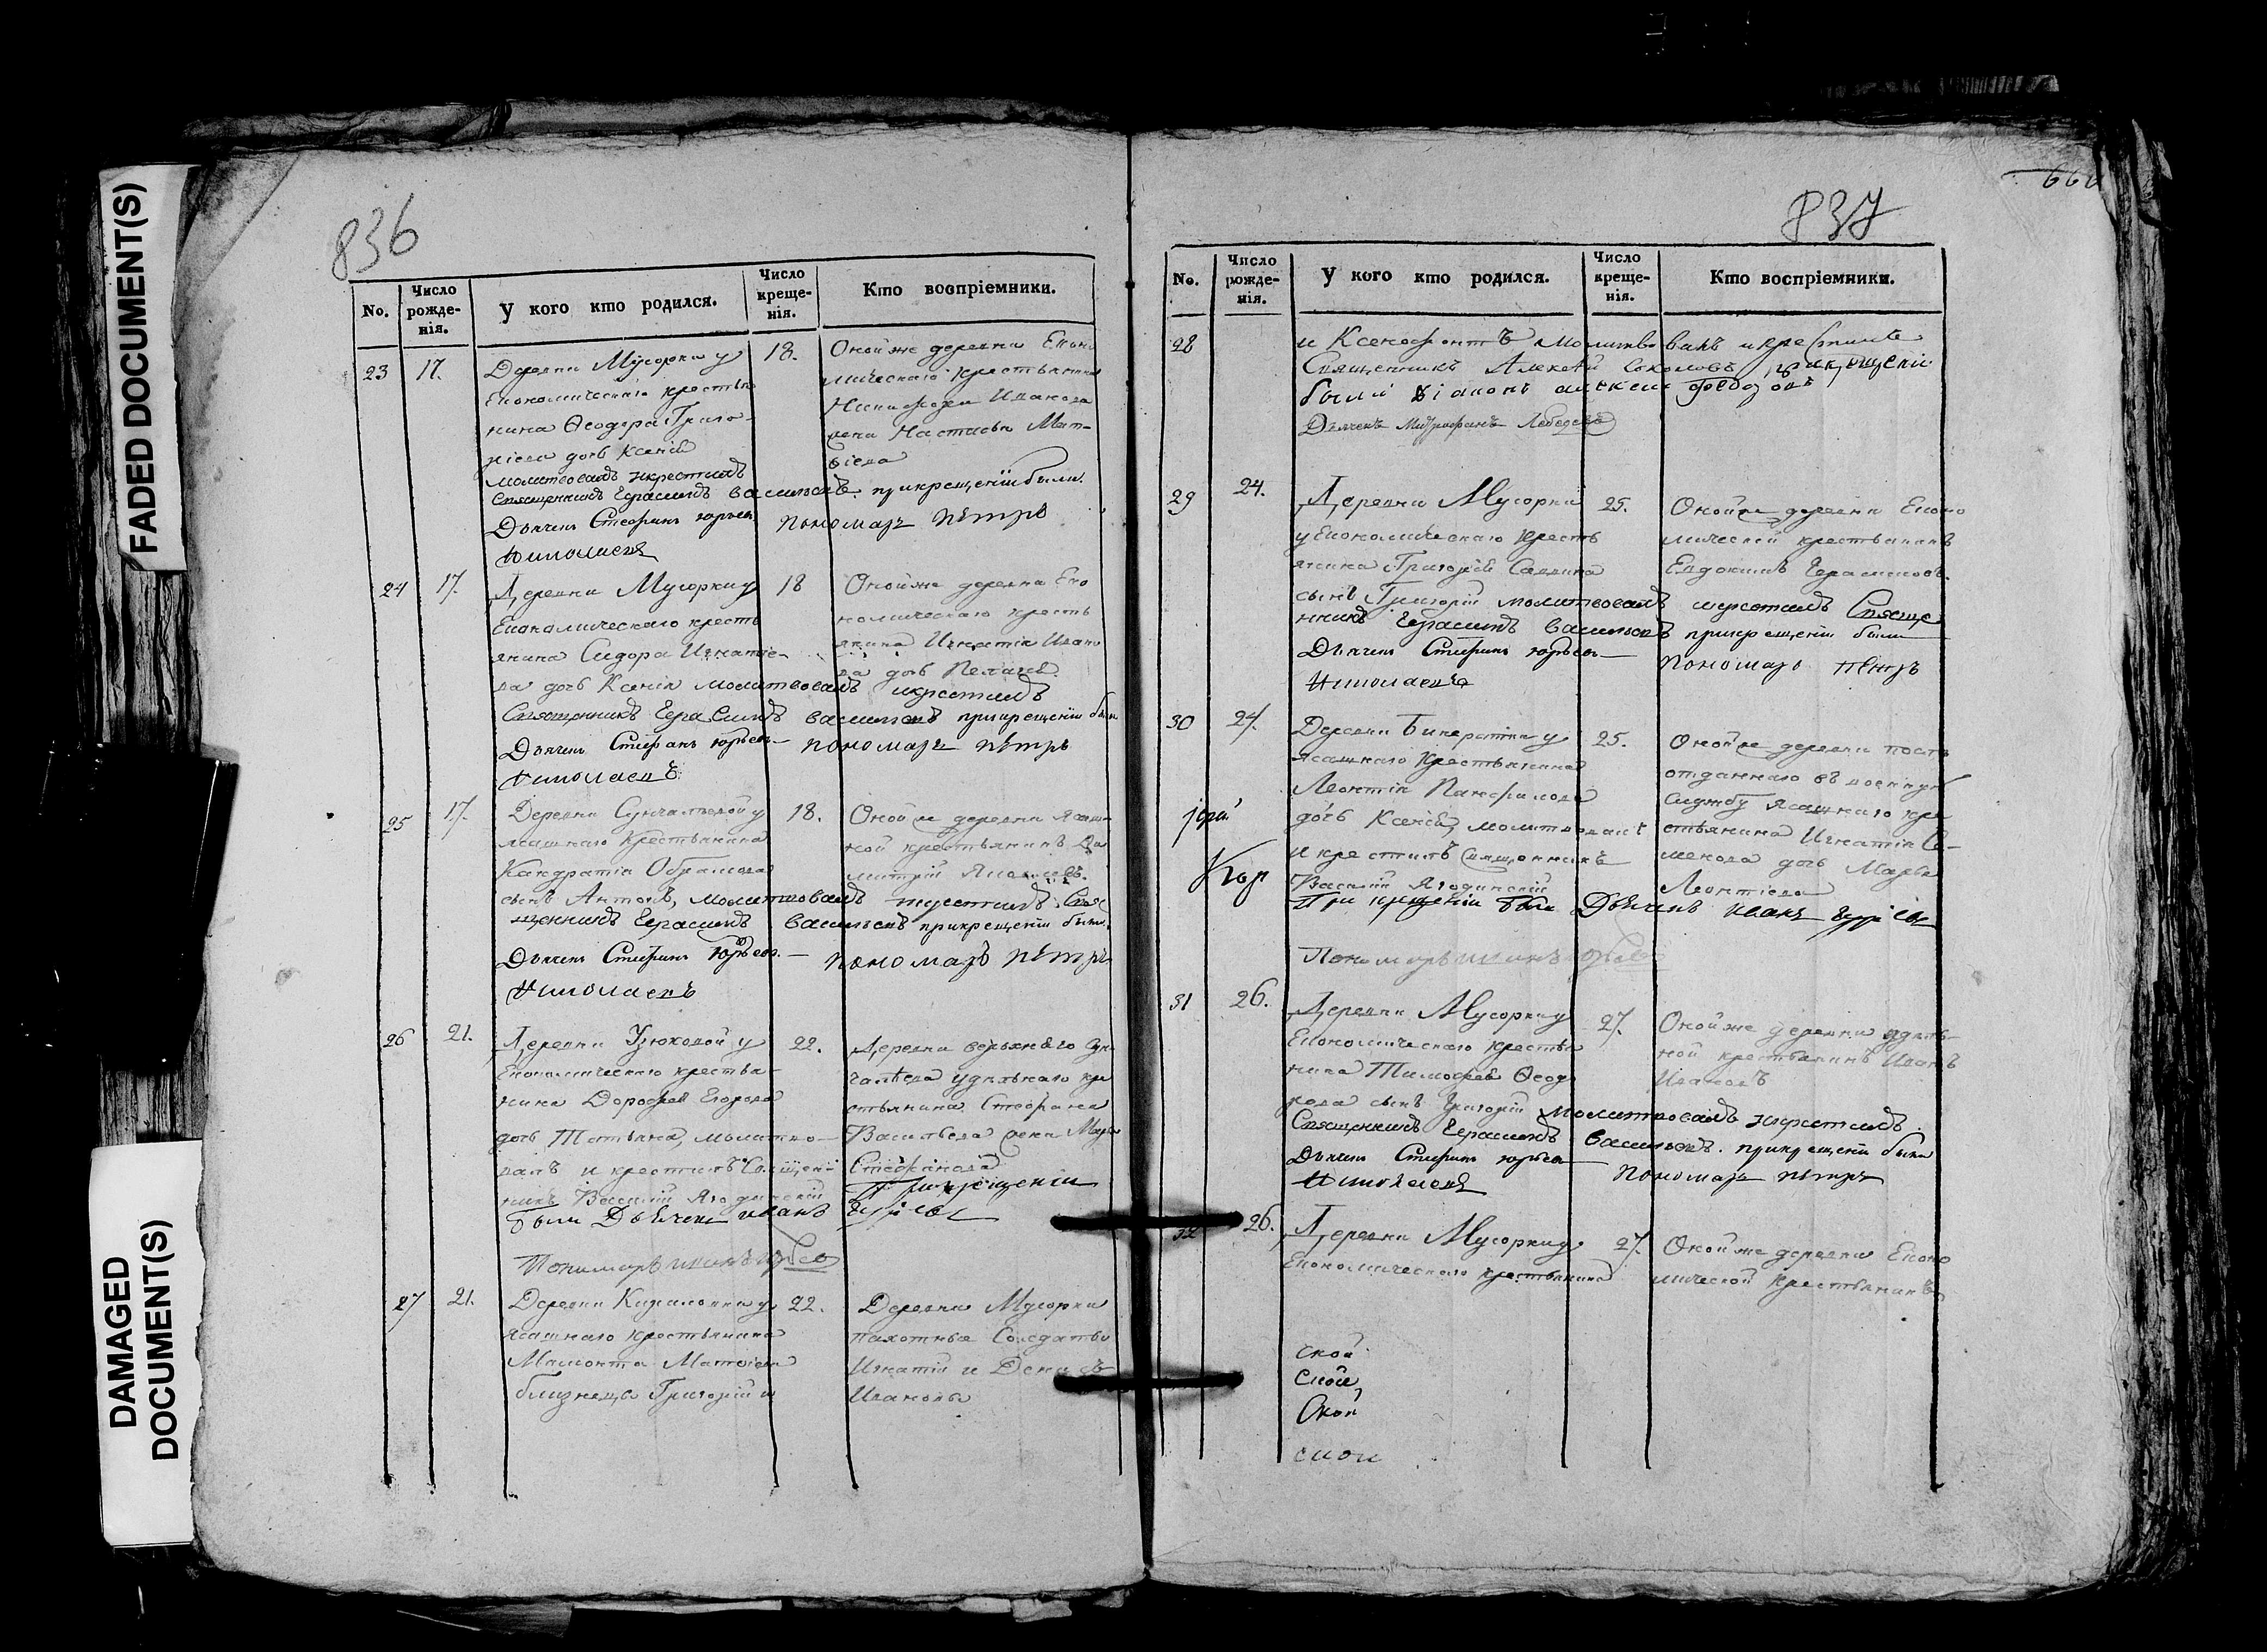 FADED DOCUMENT(S)
DAMAGED DOCUMENT(S)
836
No.
Число рожде-нія.
У кого кто родился.
Число креще-нія.
Кто воспріемники.
23
17.
Деревни Мусорки у
Економическаго крестья
нина Ѳеодора Григо-
ріева дочь Ксенія
молитвовалъ и крестилъ
Священникъ Герасимъ Васильевъ. при крещеніи были
Дьячекъ Стефанъ Юрьевъ пономарь Петръ
Николаевъ
18.
Оной же деревни Еконо
мическаго крестьянина
Никифора Иванова
жена Настасья Мат-
віева
24
17.
Деревни Мусорки у
Економическаго кресть
янина Сидора Игнатіе-
ва дочь Ксенія молитвовалъ и крестилъ
Священникъ Герасимъ Васильевъ при крещеніи были
Дьячекъ Стефанъ Юрьевъ пономарь Петръ
Николаевъ
18
Оной же деревни Еко
номическаго кресть
янина Игнатія Ивано
ва дочь Пелагея
25
17.
Деревни Сунчалеевой у
ясашнаго крестьянина
Кандратія Обрамова
сынъ Антонъ, молитвовалъ и крестилъ Свя
щенникъ Герасимъ Васильевъ при крещеніи были
Дьячекъ Стефанъ Юрьевъ. пономарь Петръ
Николаевъ
18.
Оной же деревни ясаш-
ной крестьянинъ Ди
митрій Яковлевъ.
26
21.
Деревни Узюковой у
Економическаго крестья-
нина Дорофея Егорова
дочь Татьяна, молитво-
валъ и крестилъ Священ-
никъ Василій Ягодинскій
были Дьячекъ Иванъ Гурьевъ
Пономарь
22.
Деревни верхняго Сун
чалеева удѣльнаго кре
стьянина Стефана
Васильева жена Марья
Стефанова
При крещеніи
27
21.
Деревни Кириловки у
ясашнаго крестьянина
Мамонта Матвіева
близнецы Григорій и
22.
Деревни Мусорки
пахотные Солдаты
Игнатій и Денисъ
Ивановы
666
837
No.
Число рожде-нія.
У кого кто родился.
Число креще-нія.
Кто воспріемники.
28
и Ксенофонтъ молитвовалъ и крестилъ
Священникъ Алексѣй Соколовъ, при крещеніи
были діаконъ Алексей
Дьячекъ Митрофанъ Лебедевъ
29
24.
Деревни Мусорки
у Економическаго кресть
янина Григорія Саввина
сынъ Григорій молитвовалъ и крестилъ Свяще
нникъ Герасимъ Васильевъ при крещеніи были
Дьячекъ Стефанъ Юрьевъ пономарь Петръ
Николаевъ
25.
Оной же деревни Еконо
мической крестьянинъ
Евдокимъ Герасимовъ.
30
24.
Деревни у
ясашнаго крестьянина
Леонтія Панфилова
дочь Ксенія, молитвовалъ
и крестилъ Священникъ
Василій Ягодинскій
При крещеніи были Дьячекъ Иванъ Гурьевъ
Пономарь
25.
Оной же деревни
отданнаго въ воинскую
службу ясашнаго кре
стьянина Игнатія Се-
менова дочь Марья
Леонтіева
31
26.
Деревни Мусорки у
Економическаго крестья
нина Тимофея Ѳеодо
рова сынъ Григорій молитвовалъ и крестилъ
Священникъ Герасимъ Васильевъ. при крещеніи были
Дьячекъ Стефанъ Юрьевъ пономарь Петръ
Николаевъ
27.
Оной же деревни удѣль-
ной крестьянинъ Иванъ
Ивановъ
32
26.
Деревни Мусорки у
Економическаго крестьянина
27.
Оной же деревни Еконо
мической крестьянинъ